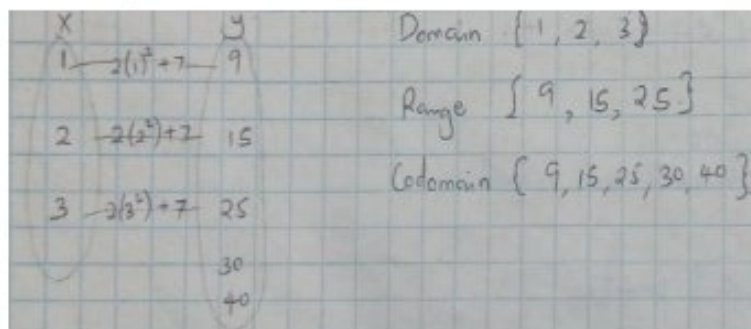 x y
1 2(1)²+7 9
2 2(2²)+7 15
3 2(3²)+7 25
30
40
Domain {1, 2, 3}
Range {9, 15, 25}
Codomain {9, 15, 25, 30, 40}